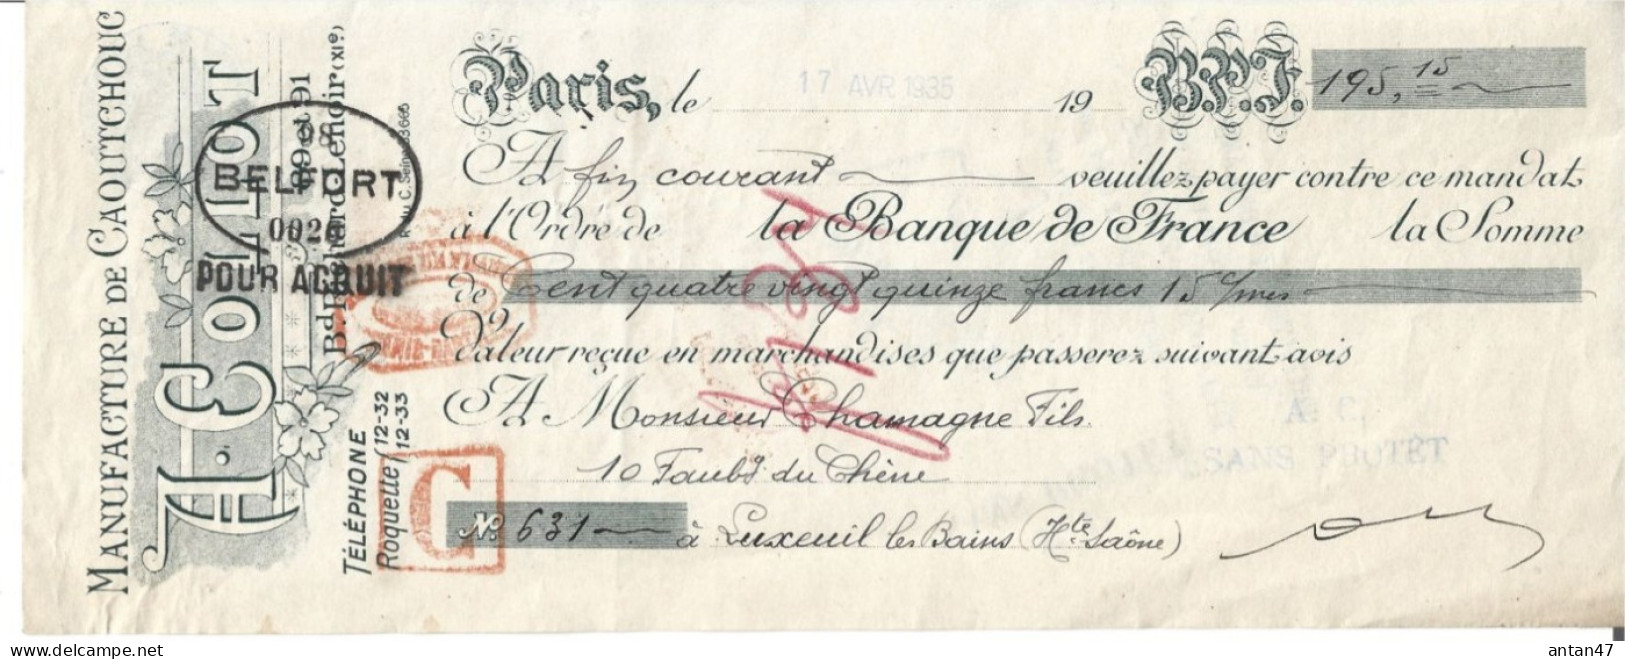 MANUFACTURE DE CAOUTCHOUC
A. COLLOT
89 et 91
Bd Richard Lenoir (XIe)
R. du C. Seine 63665
TÉLÉPHONE
Roquette 12-32
12-33
BELFORT
POUR ACQUIT
Paris, le 17 AVR 1935 19 B.P.F. 195,15
A fin courant veuillez payer contre ce mandat
à l'Ordre de la Banque de France la Somme
de Cent quatre vingt quinze francs 15 cmes
Valeur reçue en marchandises que passerez suivant avis
A Monsieur Chamagne Fils
10 Faubg du Chêne
A. C.
SANS PROTÊT
C
No. 631 à Luxeuil les Bains (Hte Saône)
antan47